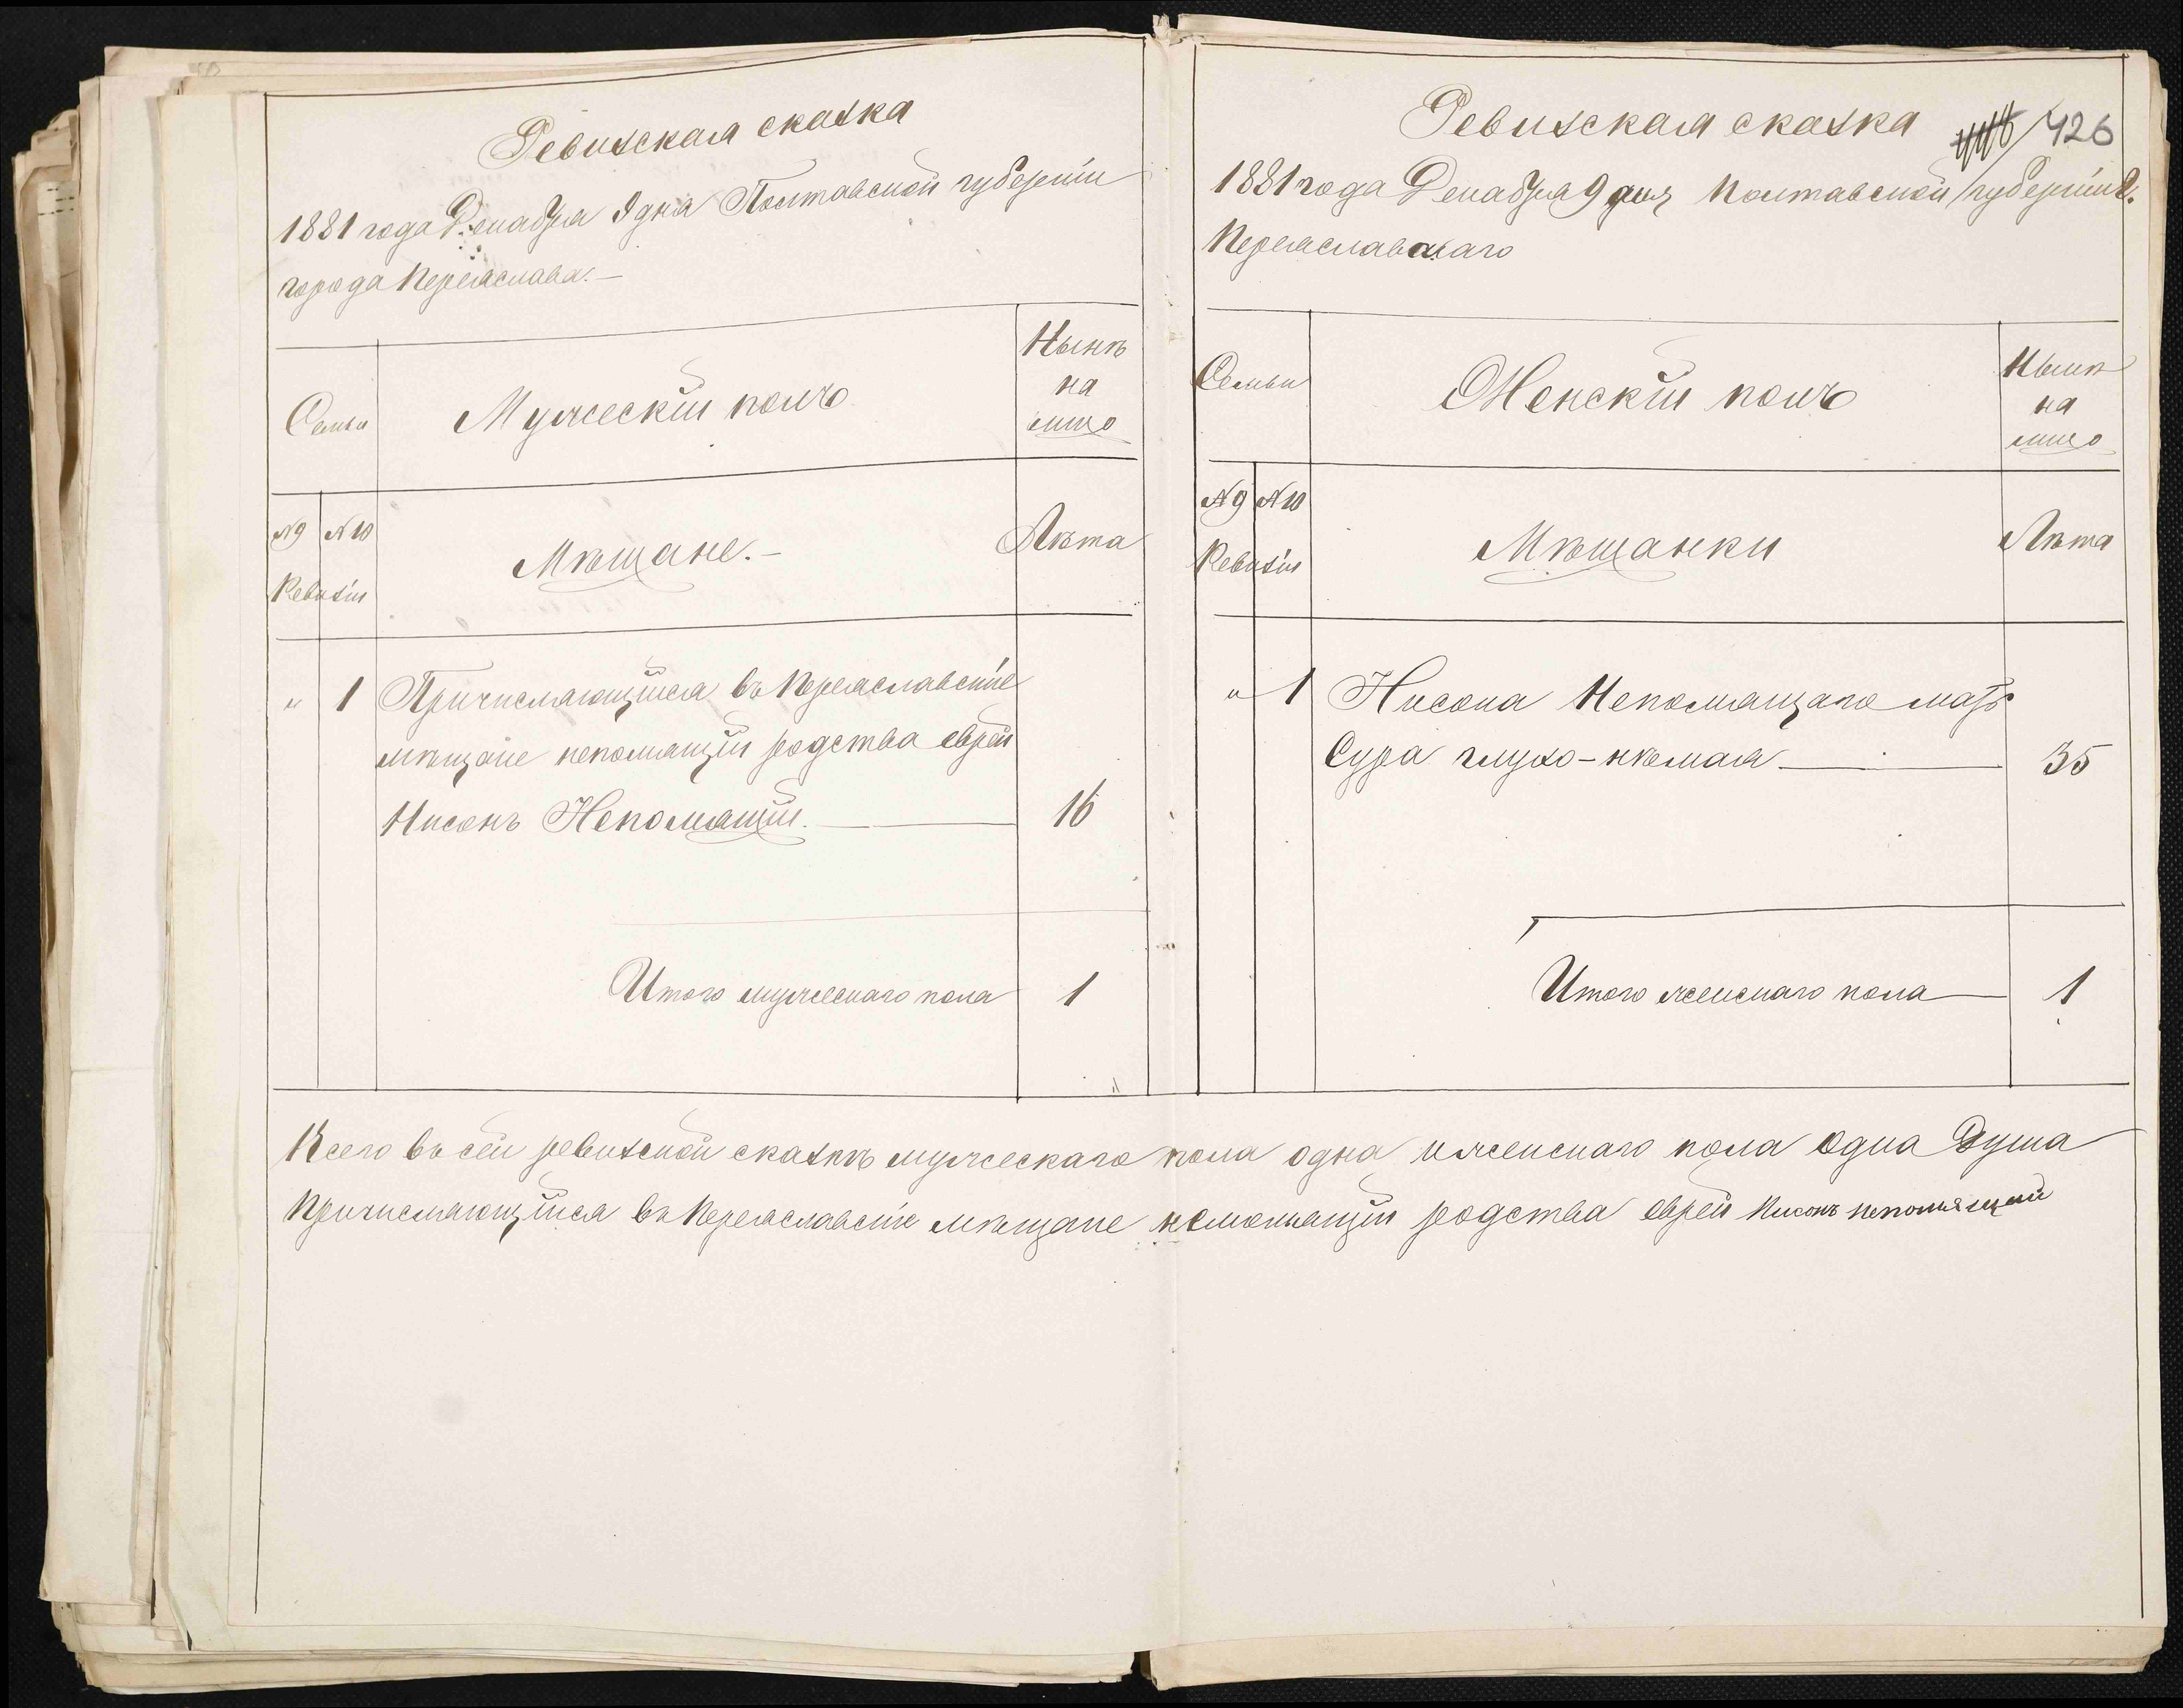 Ревизская сказка
1881 года Декабря 9 дня Полтавской губерніи
города Переяслава.—
Семьи
Мужескій полъ
Нынѣ
на
лицо
№ 9 № 10
Ревизіи
Мѣщане.—
Лѣта
" 1 Причисляющійся въ Переяславскіе
мѣщане непомящій родства еврей
Нисонъ Непомящій. — 16
Итого мужескаго пола 1
Ревизская сказка
426
1881 года Декабря 9 дня Полтавской губерніи г.
Переяславскаго
Семьи
Женскій полъ
Нынѣ
на
лицо
№ 9 № 10
Ревизіи
Мѣщанки
Лѣта
" 1 Нисона Непомящаго мать
Сура глухо-нѣмая — 35
Итого женскаго пола — 1
Всего въ сей ревизской сказкѣ мужескаго пола одна и женскаго пола одна душа
Причисляющійся въ Переяславскіе мѣщане непомнящій родства еврей Нисонъ непомнящій